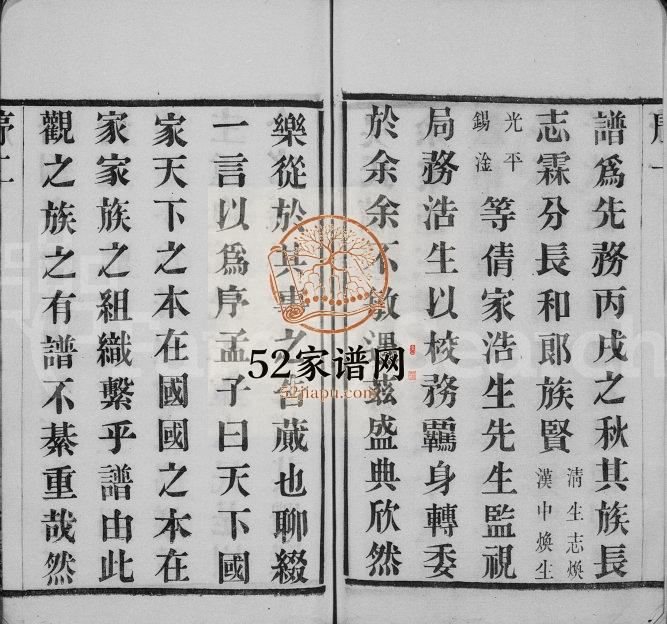 序一
譜爲先務丙戌之秋其族長
清生志煥
漢中煥生
志霖分長和郎族賢
光平
錫淦
等倩家浩生先生監視
局務浩生以校務羈身轉委
於余余不敏遇茲盛典欣然
樂從於其事之告蕆也聊綴
一言以爲序孟子曰天下國
家天下之本在國國之本在
家家族之組織繫乎譜由此
觀之族之有譜不綦重哉然
序二
52家谱网
52jiapu.com